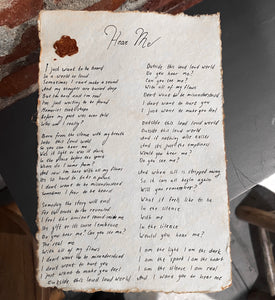 Hear Me
I just want to be heard
In a world so loud
Sometimes I can't make a sound
And my thoughts are buried deep
But I'm here and I'm real
I'm just waiting to be found
Before my past was ever told
Who will ever know I really?
Born from the storm with my breath
Into this loud world
So you can hear me
In the place before the years
Where do I come from?
And now I'm here with all my flaws
It's so hard to but a
I don't want to be misunderstood
Sometimes I fear to be heard
Someday the story will end
The old ones to be revealed
I feel the ancient
The gifts or the curse I embrace
Do you hear me? Can you see me?
The real me
With all of my flaws
I don't want to be misunderstood
I don't want to hurt you
I just want to make you feel
Outside this loud loud world
Outside this loud loud world
Do you hear me?
Can you see me?
With all of my flaws
Don't want to be misunderstood
I don't want to hurt you
I just want to make you feel
Outside this loud loud world
Outside this loud world
And if nothing else exists
And it's just the emptiness
Would you hear me?
Do you see me?
And when all is stripped away
So it can all begin again
Will you remember?
What it feels like to be
In the silence
With me
In the silence
Would you hear me?
I am the light I am the dark
I am the spark I am the hearth
I am the silence I am real
And I want you to hear me